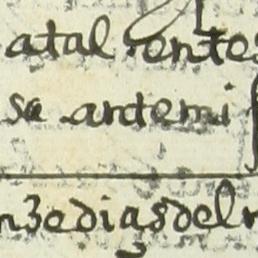 atal ente
sa ardemi
n3e diasdel